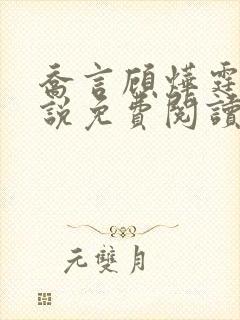 喬言顧燁霆
說免費閱讀
元雙月